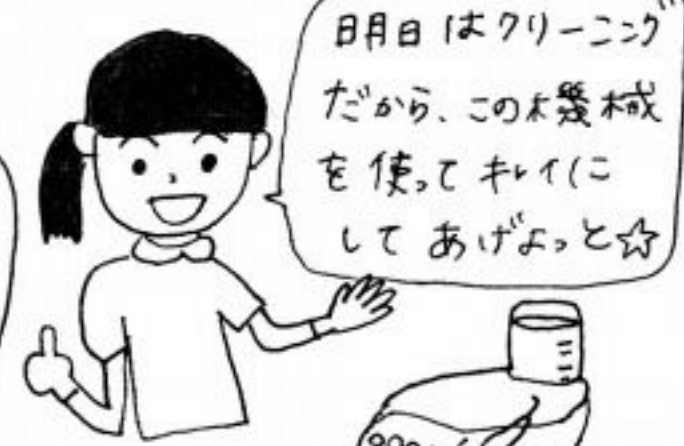 明日はクリーニング
だから、この機械
を使ってキレイに
してあげよっと☆